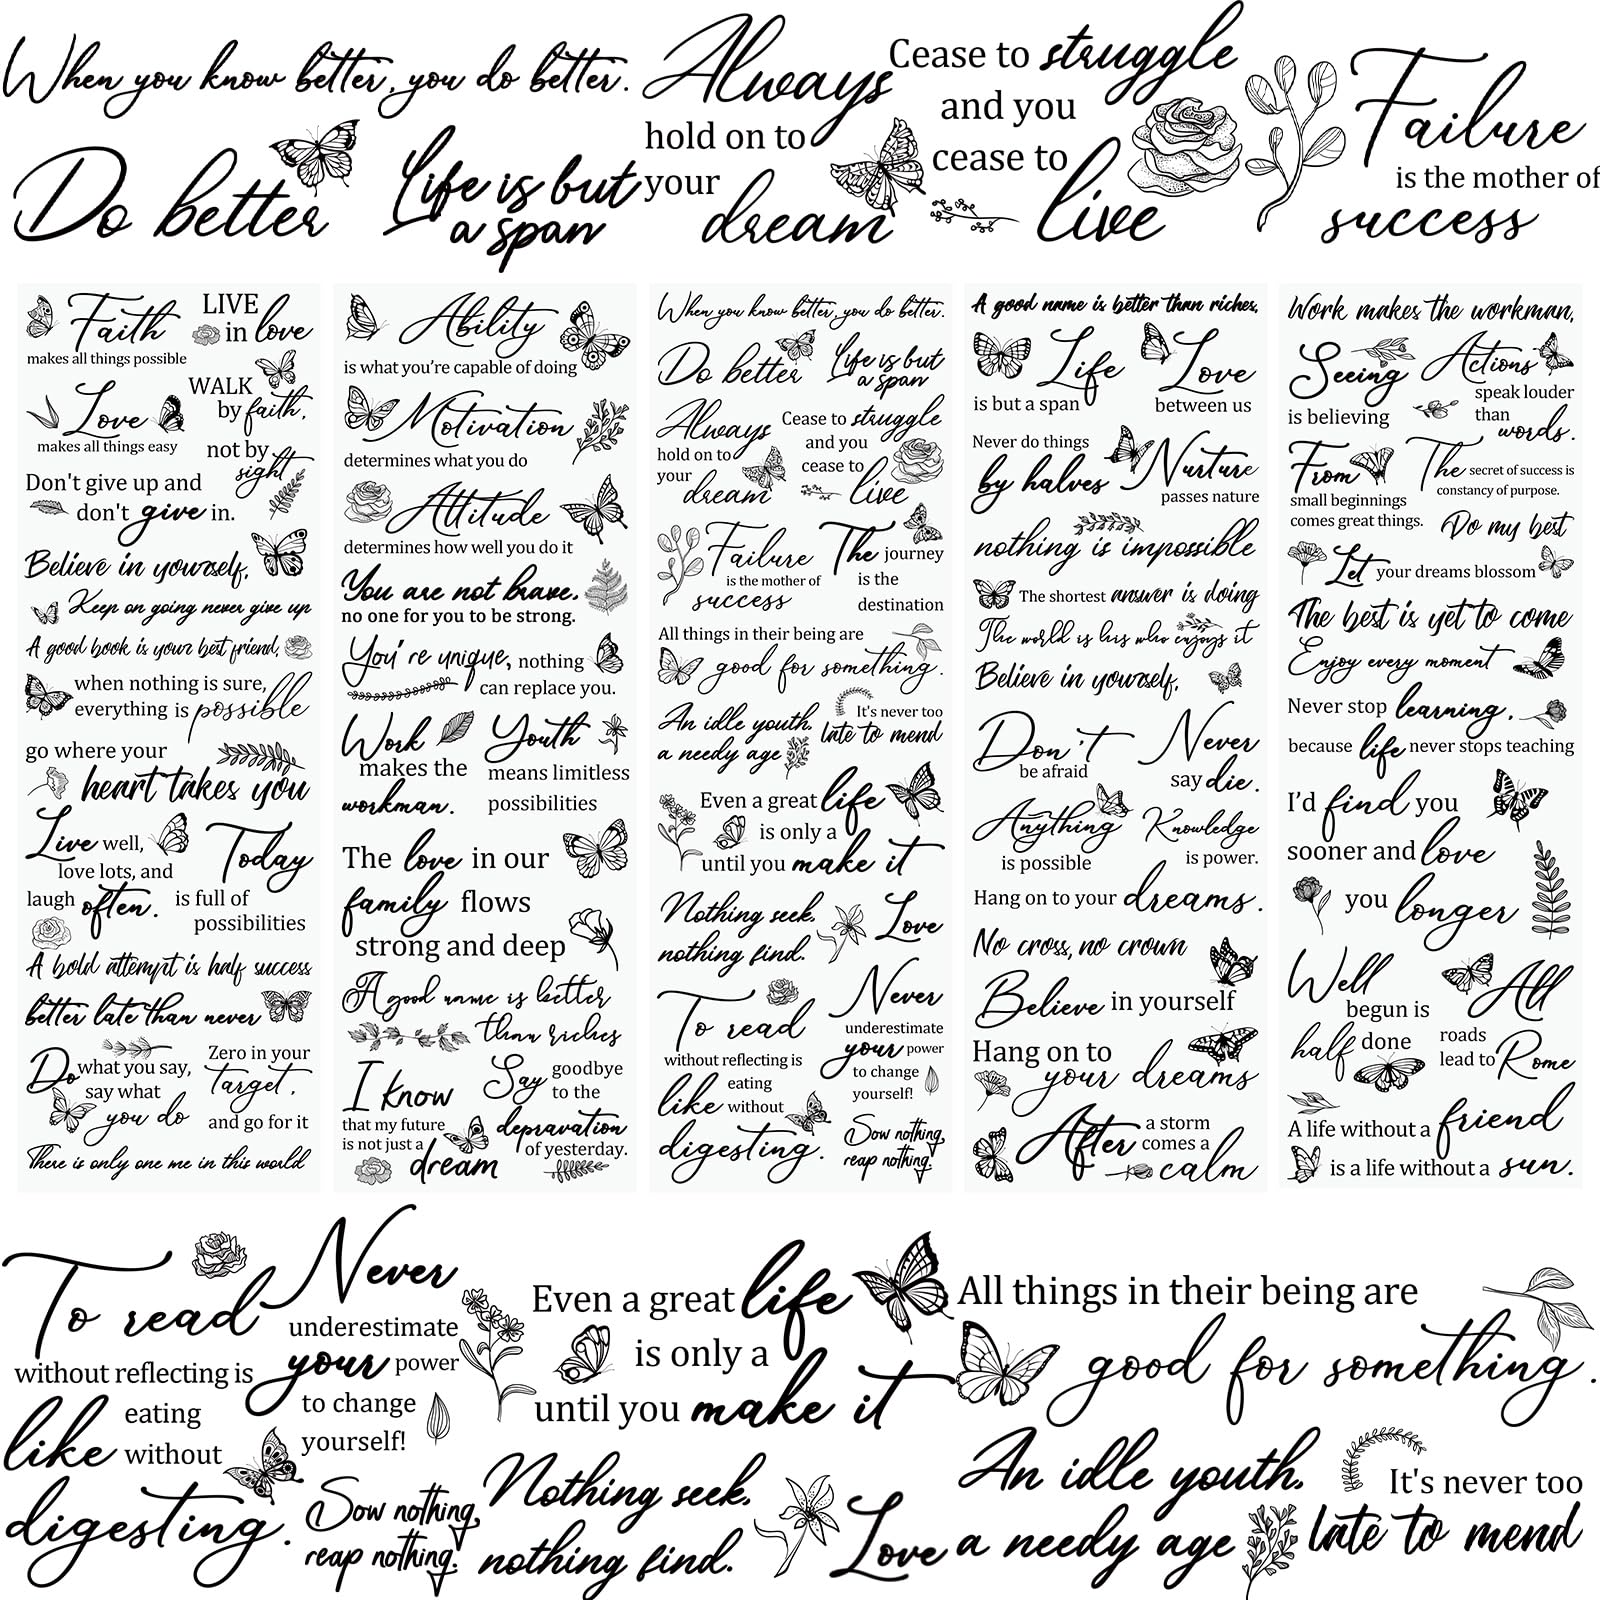 When you know better, you do better.
Do better
Life is but
a span
Always
hold on to
your
dream
Cease to struggle
and you
cease to
live
Failure
is the mother of
success
Faith
makes all things possible
LIVE
in love
Love
makes all things easy
WALK
by faith,
not by
sight
Don't give up and
don't give in.
Believe in yourself.
Keep on going never give up
A good book is your best friend.
when nothing is sure,
everything is possible
go where your
heart takes you
Live well,
love lots, and
laugh often.
Today
is full of
possibilities
A bold attempt is half success
better late than never
Do what you say,
say what
you do
Zero in your
target.
and go for it
There is only one me in this world
Ability
is what you're capable of doing
Motivation
determines what you do
Attitude
determines how well you do it
You are not brave.
no one for you to be strong.
You're unique, nothing
can replace you.
Work
makes the
workman.
Youth
means limitless
possibilities
The love in our
family flows
strong and deep
A good name is better
than riches
I know
that my future
is not just a
dream
Say goodbye
to the
depravation
of yesterday.
When you know better, you do better.
Do better
Life is but
a span
Always
hold on to
your
dream
Cease to struggle
and you
cease to
live
Failure
is the mother of
success
The journey
is the
destination
All things in their being are
good for something.
An idle youth.
a needy age
It's never too
late to mend
Even a great life
is only a
until you make it
Nothing seek.
nothing find.
Love
To read
without reflecting is
eating
like without
digesting.
Never
underestimate
your power
to change
yourself!
Sow nothing,
reap nothing.
A good name is better than riches.
Life
is but a span
Love
between us
Never do things
by halves
Nurture
passes nature
nothing is impossible
The shortest answer is doing
The world is his who enjoys it
Believe in yourself.
Don't
be afraid
Never
say die.
Anything
is possible
Knowledge
is power.
Hang on to your dreams.
No cross, no crown
Believe in yourself
Hang on to
your dreams
After a storm
comes a
calm
Work makes the workman.
Seeing
is believing
Actions
speak louder
than
words.
From
small beginnings
comes great things.
The secret of success is
constancy of purpose.
Do my best
Let your dreams blossom
The best is yet to come
Enjoy every moment
Never stop learning.
because life never stops teaching
I'd find you
sooner and love
you longer
Well
begun is
half done
All
roads
lead to Rome
A life without a friend
is a life without a sun.
To read
without reflecting is
eating
like without
digesting.
Never
underestimate
your power
to change
yourself!
Sow nothing,
reap nothing.
Even a great life
is only a
until you make it
Nothing seek.
nothing find.
Love
All things in their being are
good for something.
An idle youth.
a needy age
It's never too
late to mend